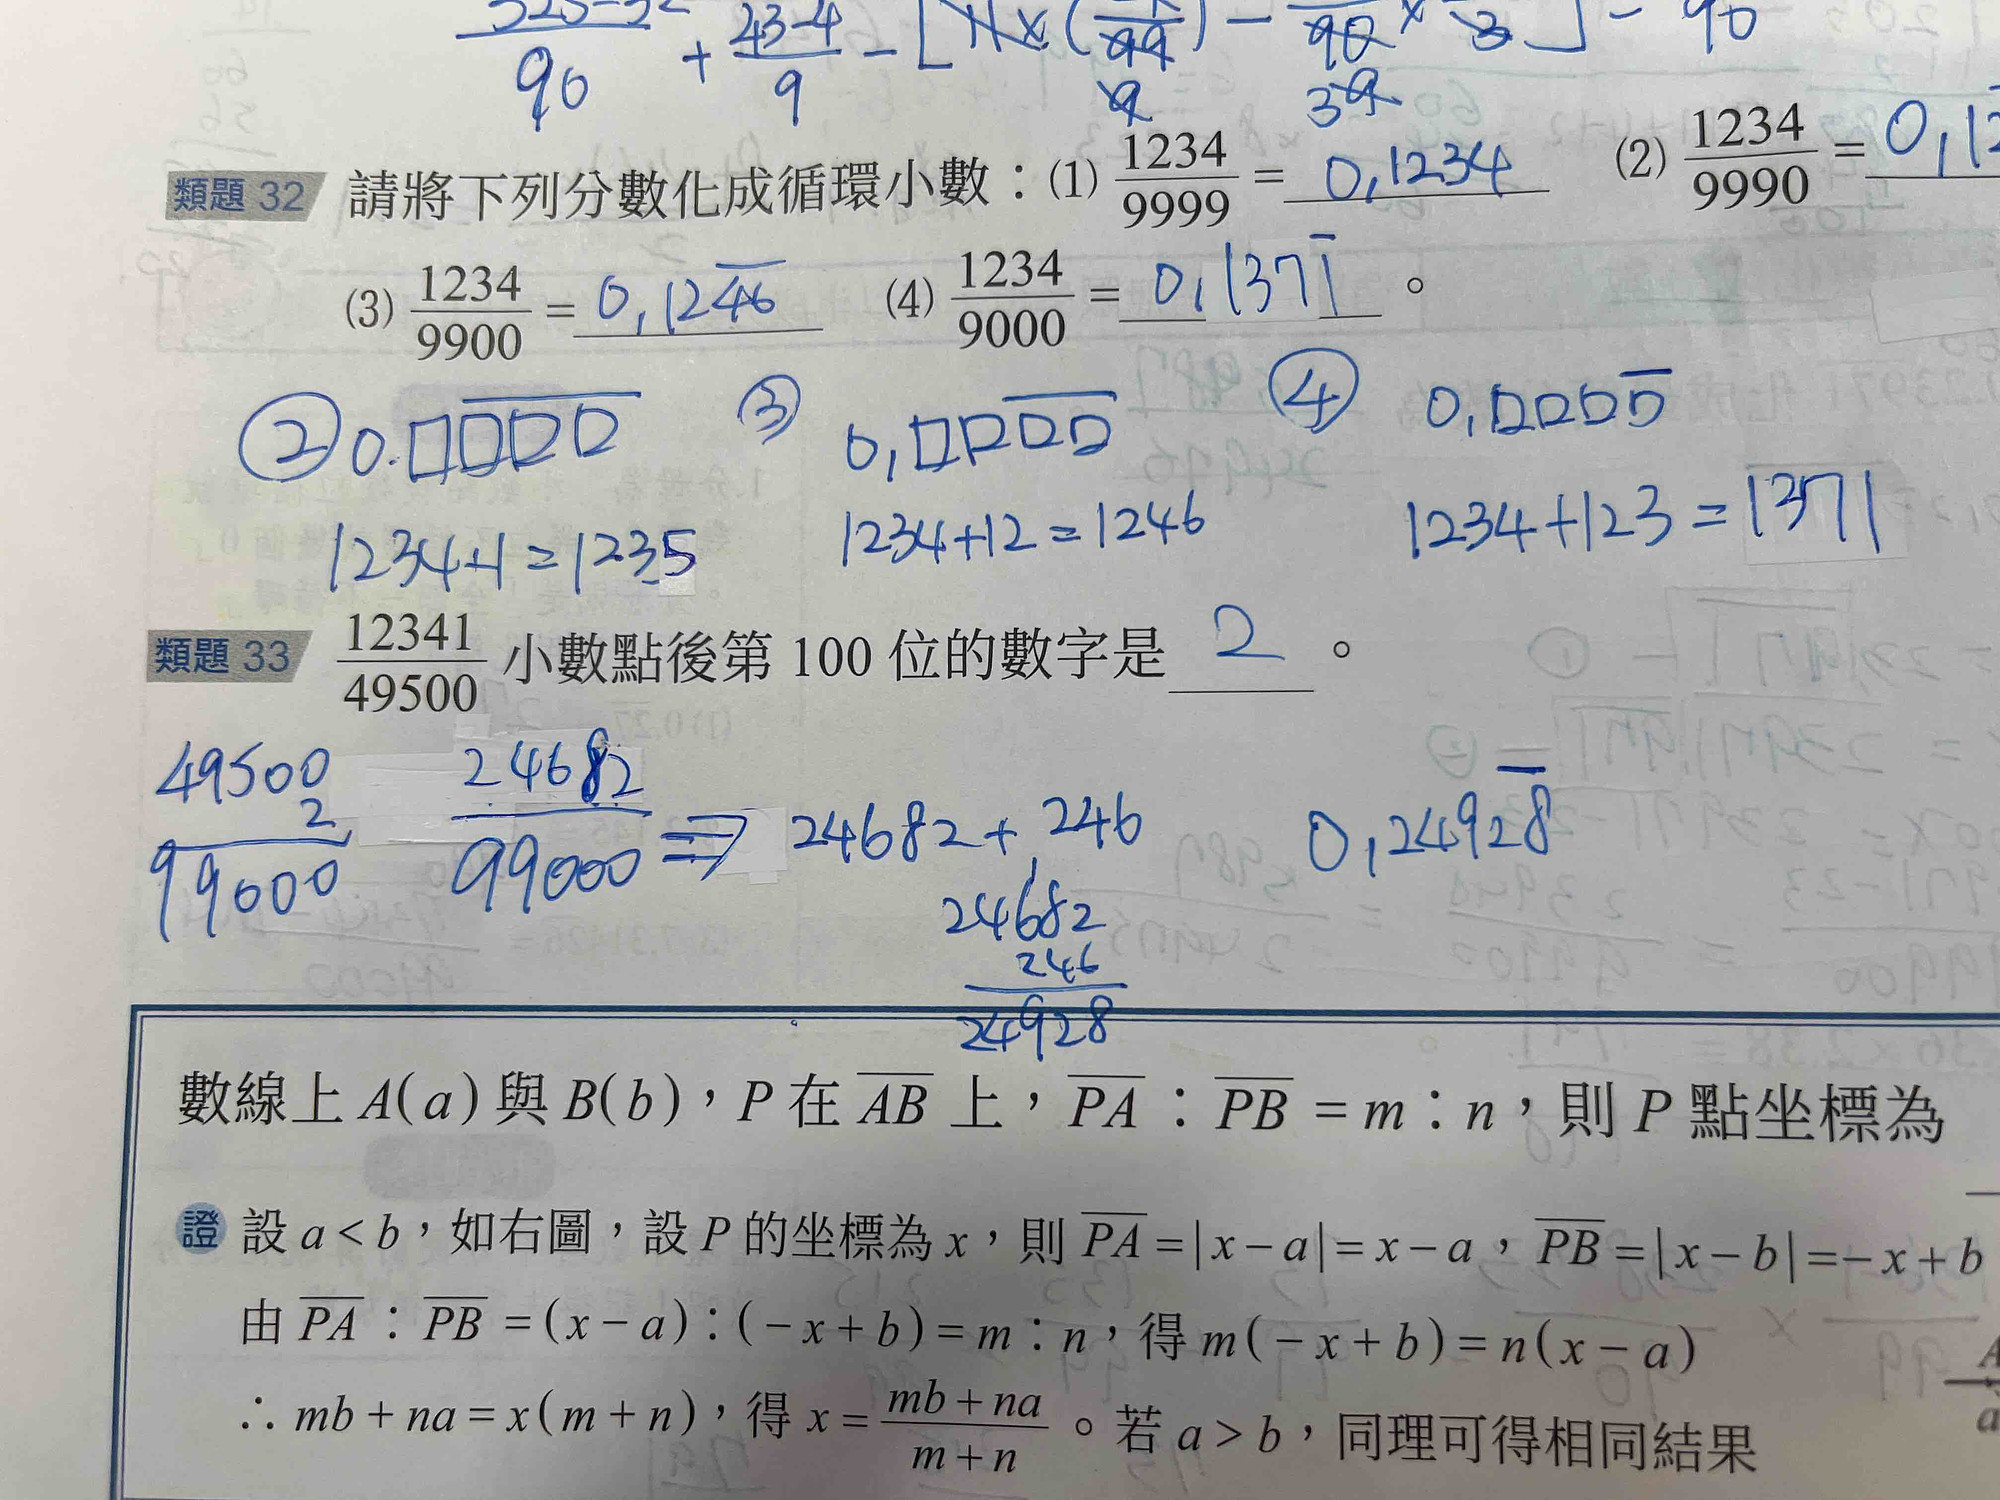 90 + 43-4/9 - [ 11 × ( /99 ) - /90 × /3 ] - 90
9 3 9
類題 32 請將下列分數化成循環小數：(1) 1234/9999 = 0.1234 (2) 1234/9990 = 0.12
(3) 1234/9900 = 0.1246 (4) 1234/9000 = 0.1371 。
② 0.□□□□ ③ 0.□□□□ ④ 0.□□□□
1234+1=1235 1234+12=1246 1234+123=1371
類題 33 12341/49500 小數點後第 100 位的數字是 2 。
49500 24682/99000 ⇒ 24682+246 0.24928
2
99000
24682
246
24928
數線上 A(a) 與 B(b)，P 在 AB 上，PA：PB = m：n，則 P 點坐標為
證 設 a < b，如右圖，設 P 的坐標為 x，則 PA = |x-a| = x-a，PB = |x-b| = -x+b
由 PA：PB = (x-a)：(-x+b) = m：n，得 m(-x+b) = n(x-a)
∴ mb+na = x(m+n)，得 x = mb+na/m+n 。若 a > b，同理可得相同結果